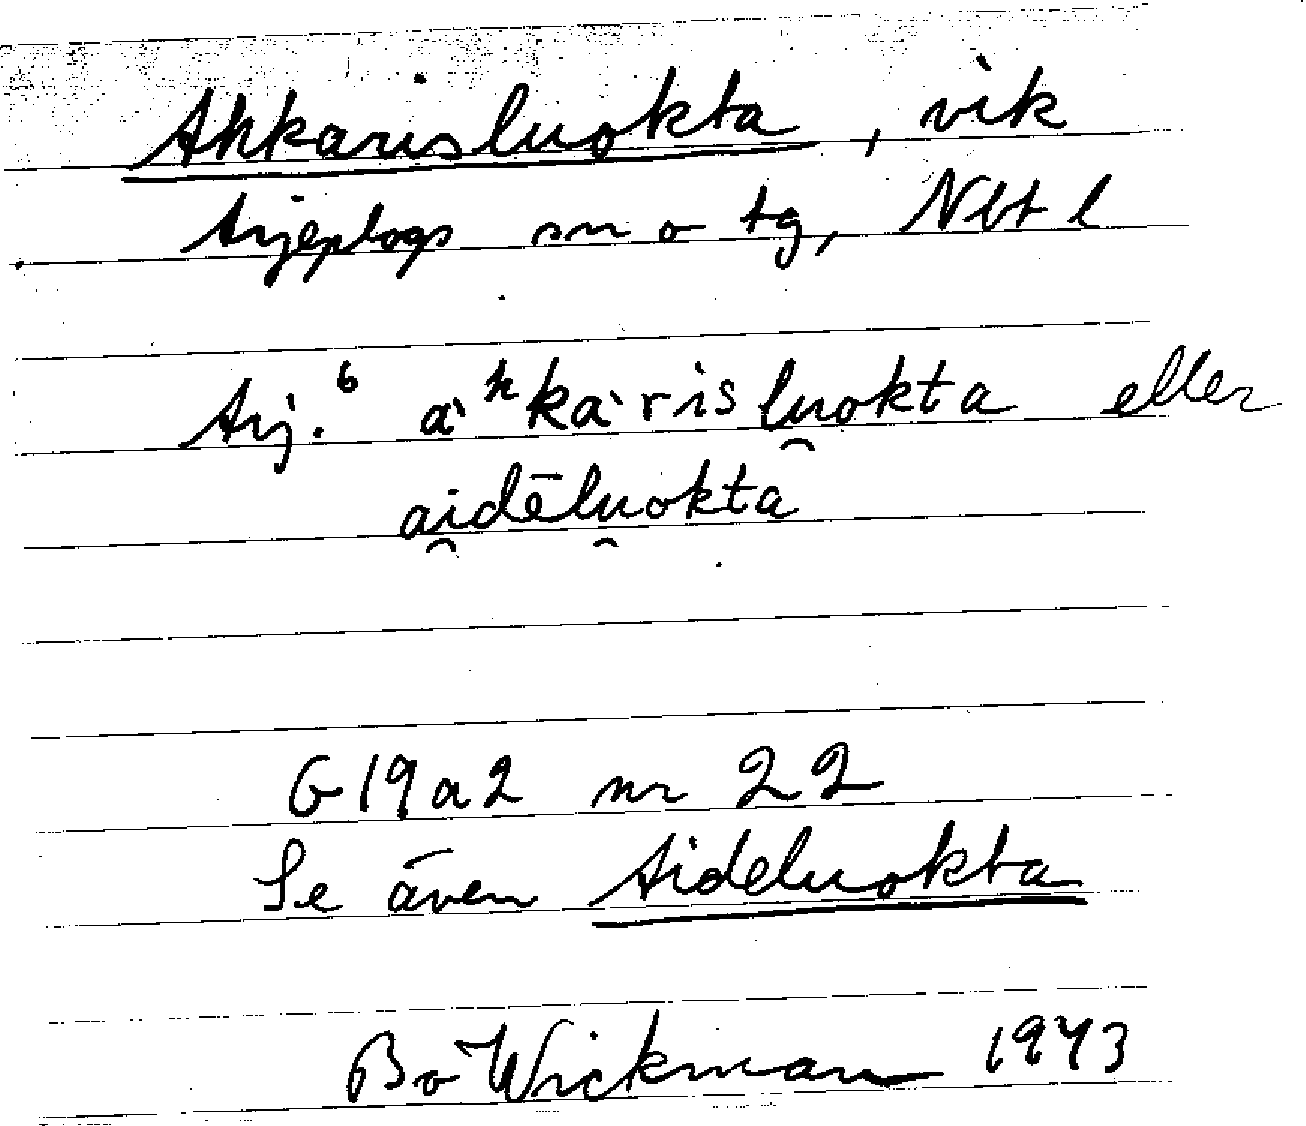 Ahkarisluokta, vik
Arjeplogs sn o tg, Nbt l
Arj.⁶ a`ʰka`risluo̯kta eller
ai̯dēlu̯okta
G19a2 nr 22
Se även Aideluokta
Bo Wickman 1943